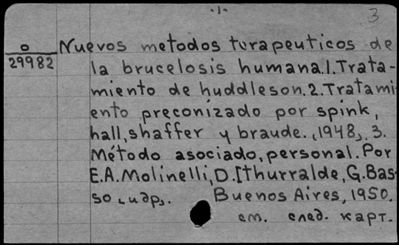 -1- 3
о
29982
Nuevos metodos turapeuticos de
la brucelosis humana.1.Trata-
miento de huddleson.2.Tratami
ento preconizado por spink,
hall, shaffer y braude. (1948). 3.
Método asociado, personal. Por
E.A.Molinelli, D.Ithurralde, G.Bas-
so и др. Buenos Aires, 1950.
см. след. карт.